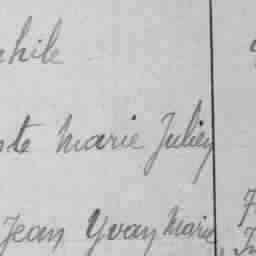 hile
te Marie Julien
Jean Yvan Marie